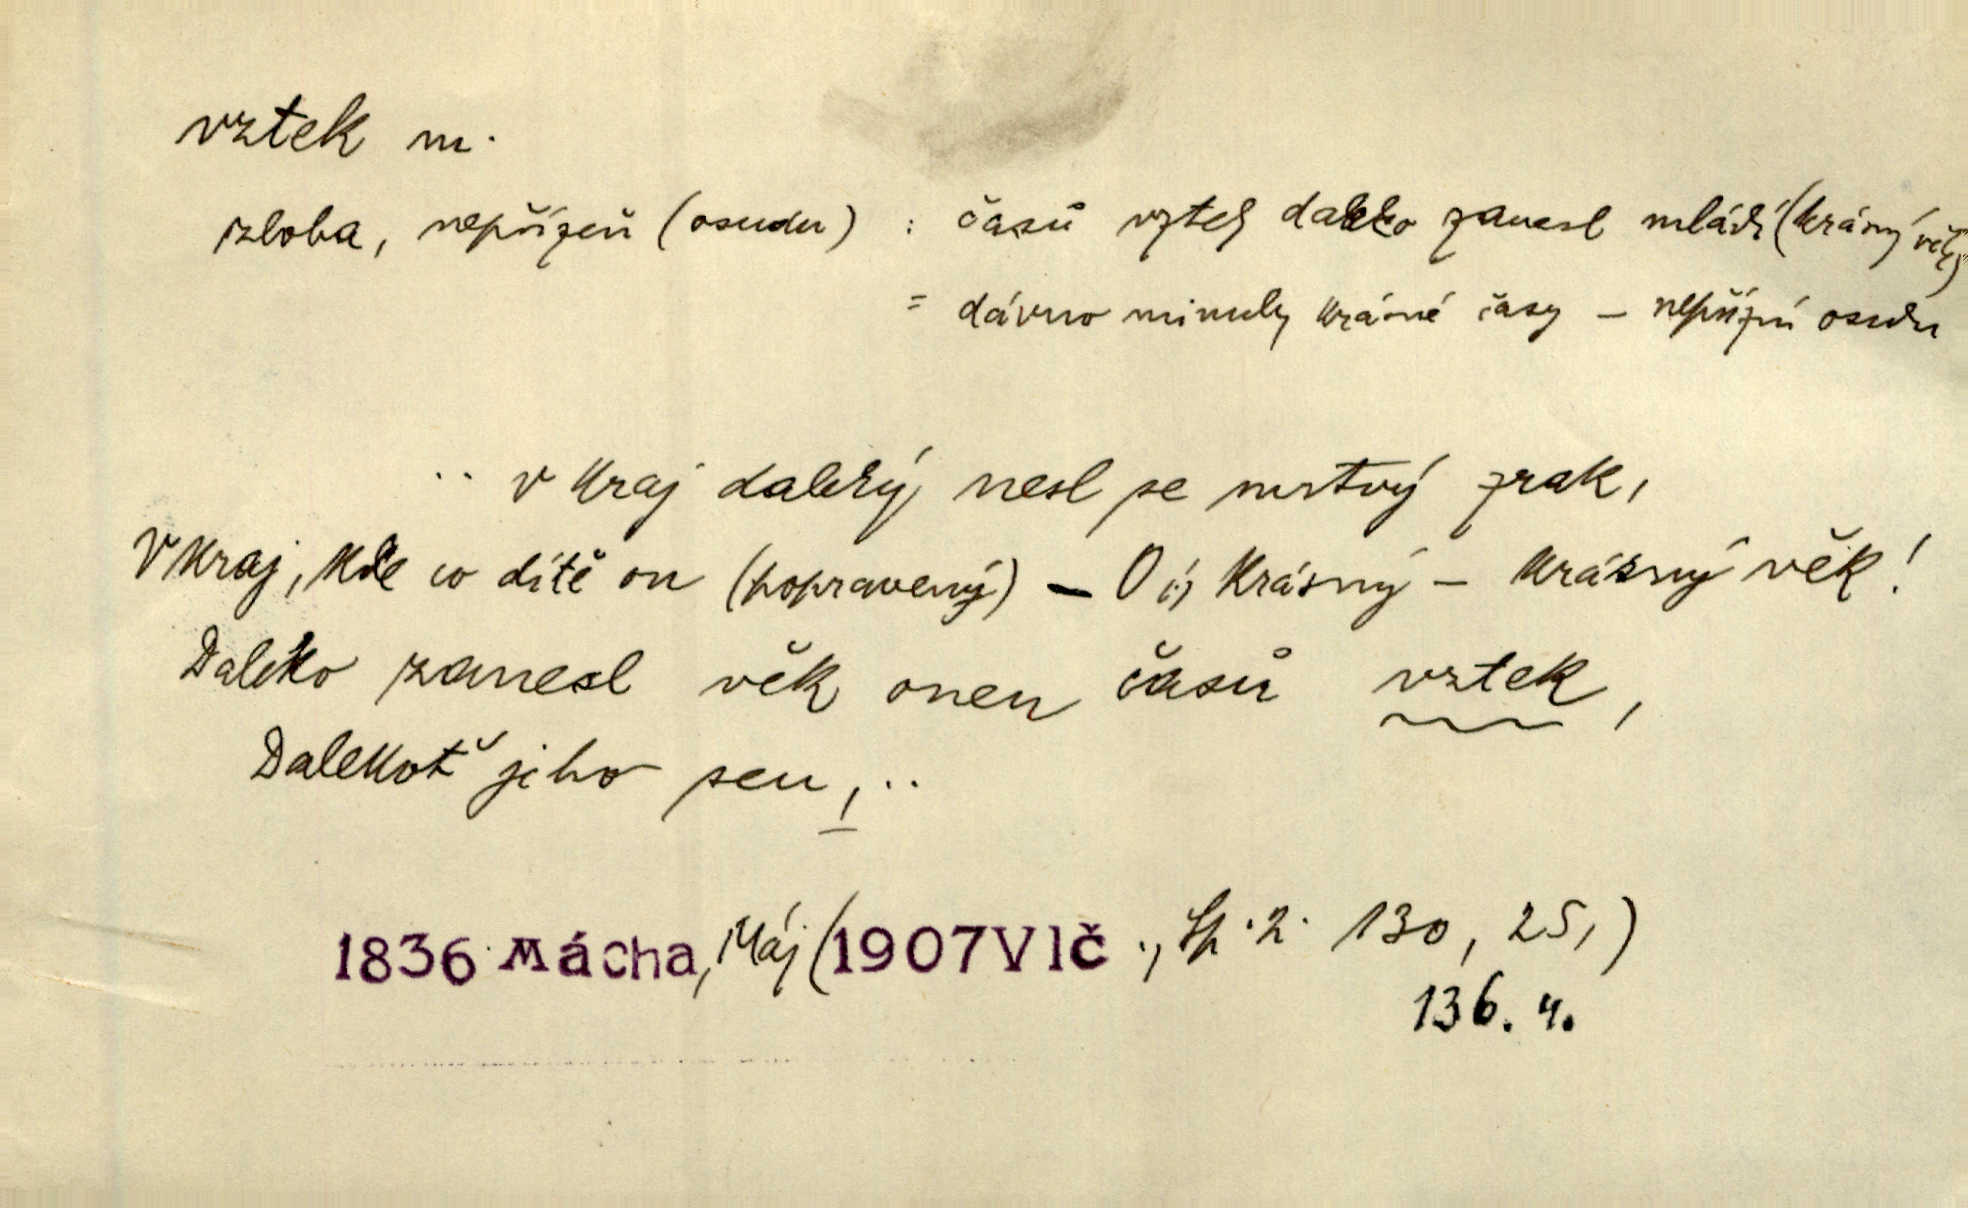 vztek m.
zloba, nepřízeň (osudu) : časů vztek daleko zanesl mládí (krásný věk)
= dávno minuly krásné časy – nepřízní osudu
.. v kraj daleký nesl se mrtvý zrak,
V kraj, kde co dítě on (popravený) – O (!) krásný – krásný věk!
Daleko zanesl věk onen časů vztek,
Dalekoť jeho sen, ..
1836 Mácha, Máj (1907 Vlč., Sp. 2. 130, 25,)
136. 4.